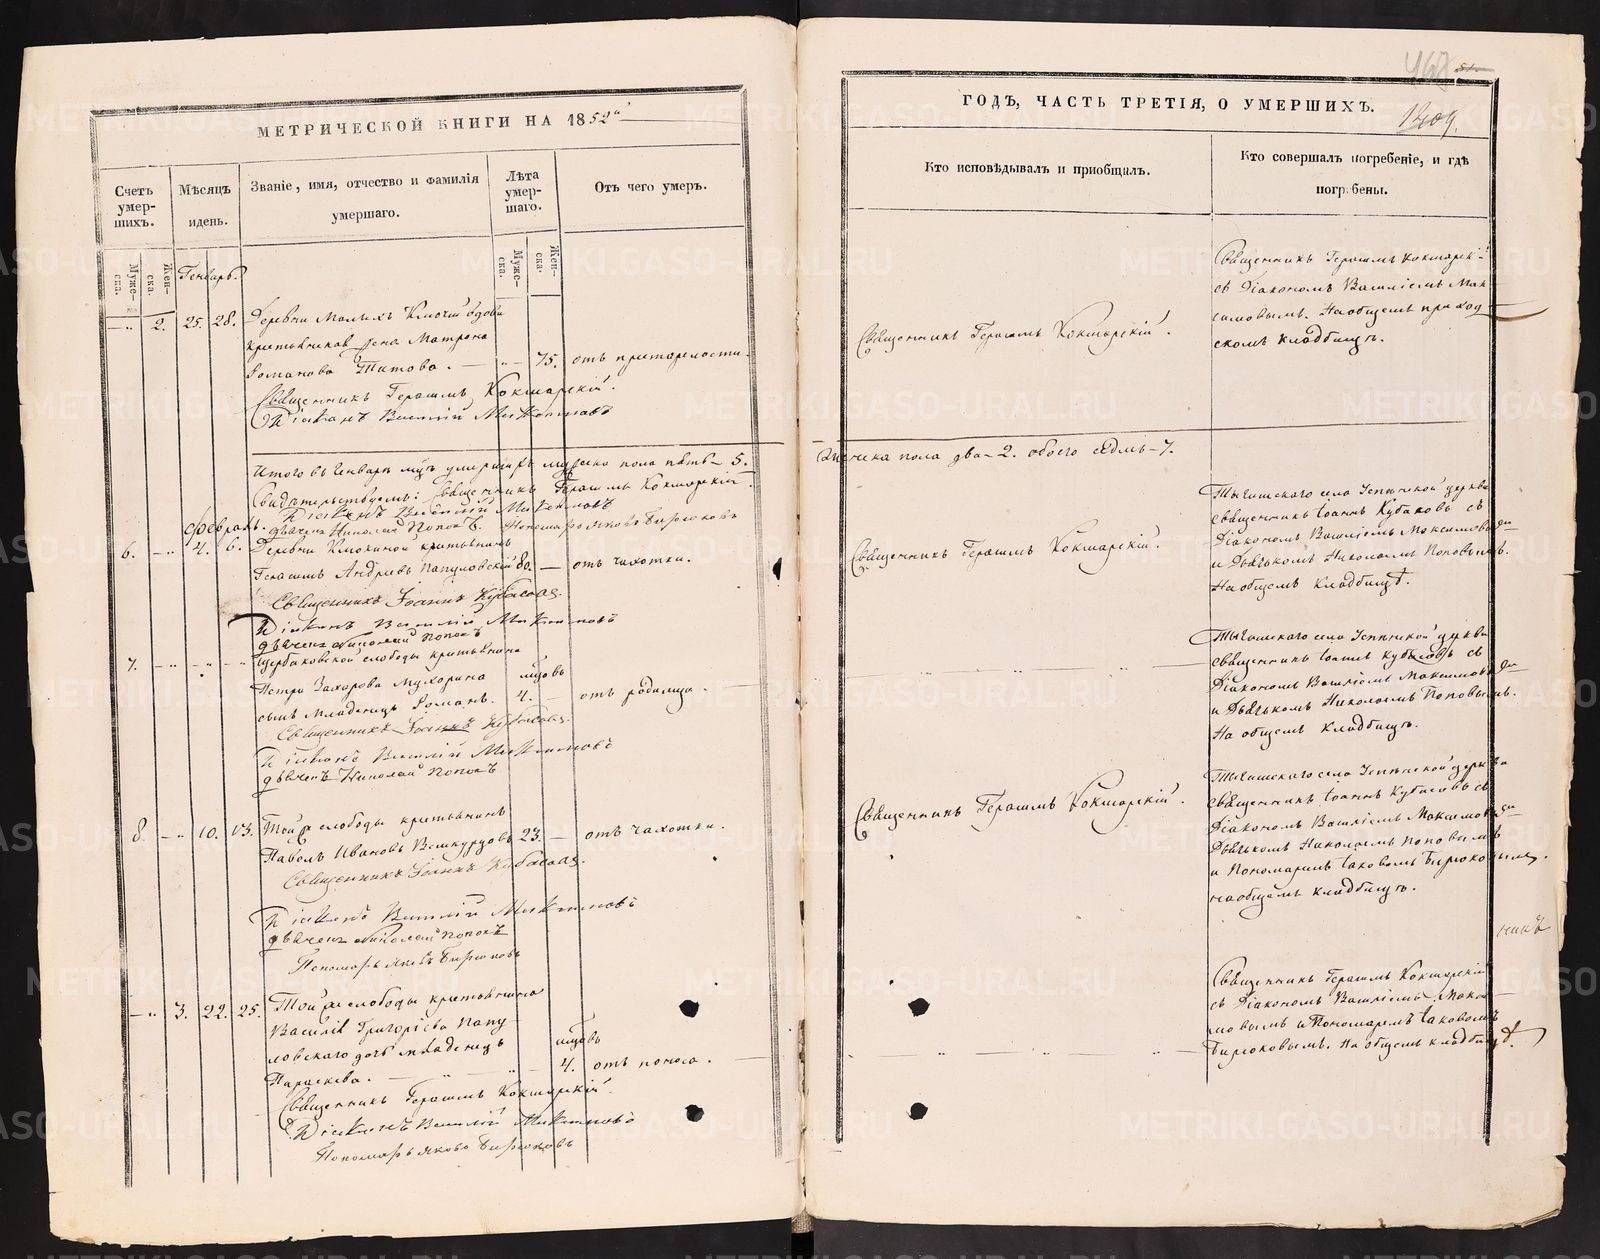 МЕТРИЧЕСКОЙ КНИГИ НА 1852й
Счетъ умер-
шихъ.
Мѣсяцъ
и день.
Званіе, имя, отчество и фамилія
умершаго.
Лѣта
умер-
шаго.
Отъ чего умеръ.
Муже-
ска.
Жен-
ска.
Муже-
ска.
Жен-
ска.
Генварь.
2. 25. 28. Деревни Малыхъ
крестьянская жена Матрона
Романова Титова. 75. отъ престарелости.
Священникъ Герасимъ Кокшарскій.
Діаконъ Василій Максимовъ
Итого въ Генварѣ мцѣ умершихъ мужеска пола пять 5.
Свидѣтельствуемъ: Священникъ Герасимъ Кокшарскій
Діаконъ Василій Максимовъ
Дьячекъ Николай Поповъ. Пономарь Яковъ Бирюковъ
Февраль.
6. 4. 6. Деревни крестьянинъ
Герасимъ Андреевъ 80. отъ чахотки.
Священникъ Іоаннъ Кубасовъ
Діаконъ Василій Максимовъ
Дьячекъ Николай Поповъ
7. Щербаковской слободы крестьянина
Петра Захарова Мухорина мцовъ
сынъ младенецъ Романъ. 4. отъ родимца.
Священникъ Іоаннъ Кубасовъ
Діаконъ Василій Максимовъ
Дьячекъ Николай Поповъ
8. 10. 13. Той же слободы крестьянинъ
Павелъ Ивановъ 23. отъ чахотки.
Священникъ Іоаннъ Кубасовъ
Діаконъ Василій Максимовъ
Дьячекъ Николай Поповъ
Пономарь Яковъ Бирюковъ
3. 22. 25. Той же слободы крестьянина
Василія Григорьева Папу
ловскаго дочь младенецъ мцовъ
Параскева. 4. отъ поноса.
Священникъ Герасимъ Кокшарскій
Діаконъ Василій Максимовъ
Пономарь Яковъ Бирюковъ
468
1409.
ГОДЪ, ЧАСТЬ ТРЕТІЯ, О УМЕРШИХЪ.
Кто исповѣдывалъ и пріобщилъ.
Кто совершалъ погребеніе, и гдѣ
погребены.
Священникъ Герасимъ Кокшарскій.
Священникъ Герасимъ Кокшарскій
съ Діакономъ Василіемъ Мак
симовымъ. На общемъ приход
скомъ кладбищѣ.
женска пола два 2. обоего седмь 7.
Священникъ Герасимъ Кокшарскій.
села церкви
священникъ Іоаннъ Кубасовъ съ
Діакономъ Василіемъ Максимовымъ
и Дьячкомъ Николаемъ Поповымъ.
На общемъ кладбищѣ.
села церкви
священникъ Іоаннъ Кубасовъ съ
Діакономъ Василіемъ Максимовымъ
и Дьячкомъ Николаемъ Поповымъ.
На общемъ кладбищѣ.
Священникъ Герасимъ Кокшарскій.
села церкви
священникъ Іоаннъ Кубасовъ съ
Діакономъ Василіемъ Максимовымъ
Дьячкомъ Николаемъ Поповымъ
и Пономаремъ Іаковомъ Бирюковымъ.
на общемъ кладбищѣ.
Священникъ Герасимъ Кокшарскій
съ Діакономъ Василіемъ Макси
мовымъ и Пономаремъ Іаковомъ
Бирюковымъ. На общемъ кладбищѣ.
METRIKI.GASO-URAL.RU